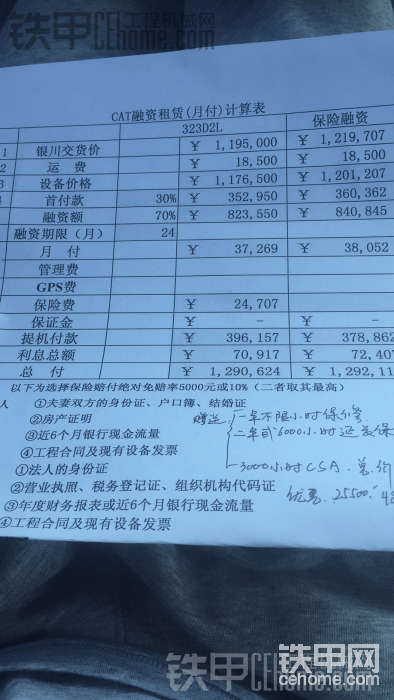 铁甲 工程机械网 CEhome.com
CAT融资租赁(月付)计算表
323D2L 保险融资
1 银川交货价 ￥ 1,195,000 ￥ 1,219,707
2 运 费 ￥ 18,500 ￥ 18,500
3 设备价格 ￥ 1,176,500 ￥ 1,201,207
首付款 30% ￥ 352,950 ￥ 360,362
融资额 70% ￥ 823,550 ￥ 840,845
融资期限（月） 24
月 付 ￥ 37,269 ￥ 38,052
管理费
GPS费
保险费 ￥ 24,707
保证金 ￥ - ￥ -
提机付款 ￥ 396,157 ￥ 378,862
利息总额 ￥ 70,917 ￥ 72,407
总 付 ￥ 1,290,624 ￥ 1,292,11
以下为选择保险赔付绝对免赔率5000元或10%（二者取其最高）
人 ①夫妻双方的身份证、户口簿、结婚证
②房产证明 赠送 一年不限小时保修
③近6个月银行现金流量 二年或6000小时延长保
④工程合同及现有设备发票
3000小时CSA.
①法人的身份证
②营业执照、税务登记证、组织机构代码证
优惠 25500.
③年度财务报表或近6个月银行现金流量
④工程合同及现有设备发票
铁甲 CEhome.com
铁甲 工程机械网 CEhome.com